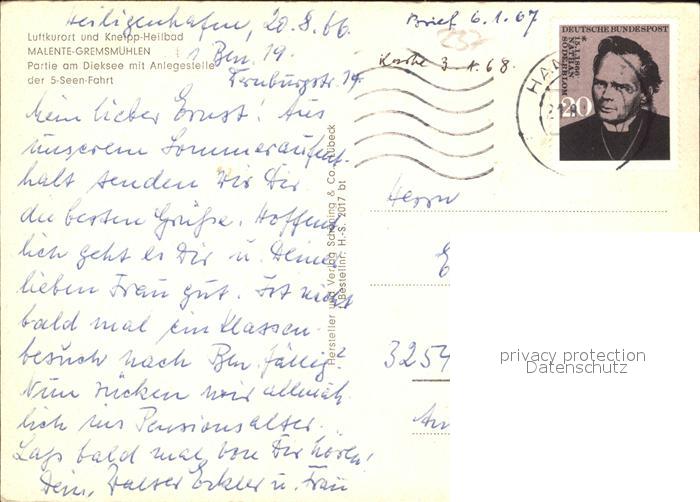 Heiligenhafen, 20.8.66
Brief 6.1.67
Luftkurort und Kneipp-Heilbad
MALENTE-GREMSMÜHLEN
Partie am Dieksee mit Anlegestelle
der 5-Seen-Fahrt
1 Bln. 19.
Karte 3.1.68.
DEUTSCHE BUNDESPOST
* 15.1.1866
NATHAN SÖDERBLOM
20
HA
Mein lieber Ernst! Aus
unserem Sommeraufent-
halt senden wir Dir
die besten Grüße. Hoffent-
lich geht es Dir u. Deiner
lieben Frau gut. Ist nicht
bald mal ein Klassen-
besuch nach Bln. fällig?
Nun rücken wir allmäh-
lich ins Pensionsalter.
Lass bald mal von Dir hören!
Dein Walter u. Frau
Hersteller und Verlag Schöning & Co., Lübeck
Bestellnr. H.-S. 2017 bt
Herrn
E
3254
privacy protection
Datenschutz